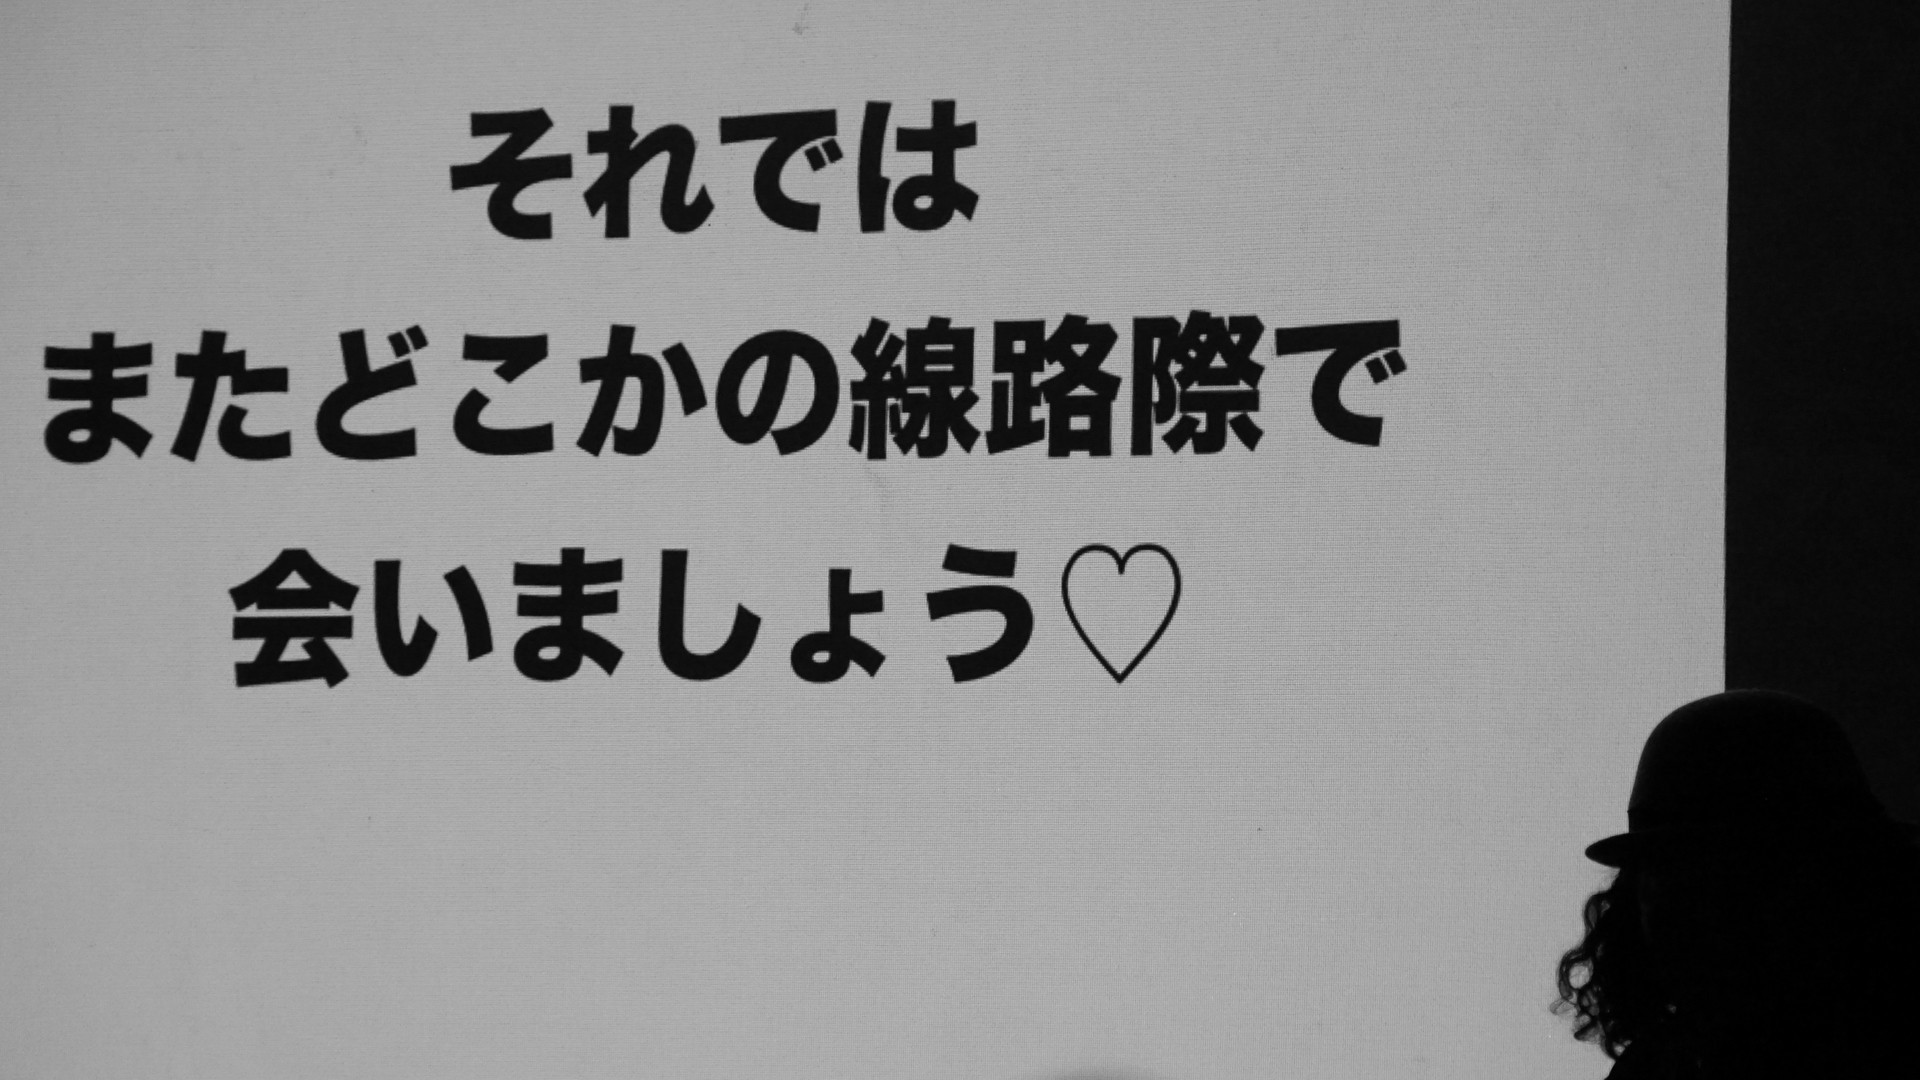 それでは
またどこかの線路際で
会いましょう♡